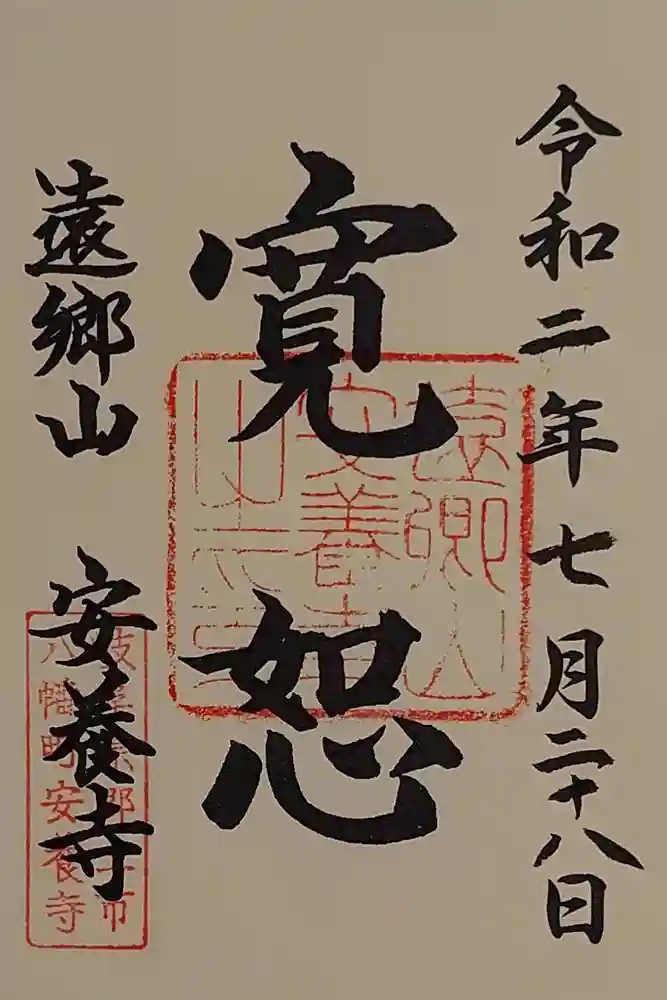 令和二年七月二十八日
寛恕
遠郷山 安養寺
遠郷山
安養寺
之印
岐阜県郡上市
八幡町安養寺